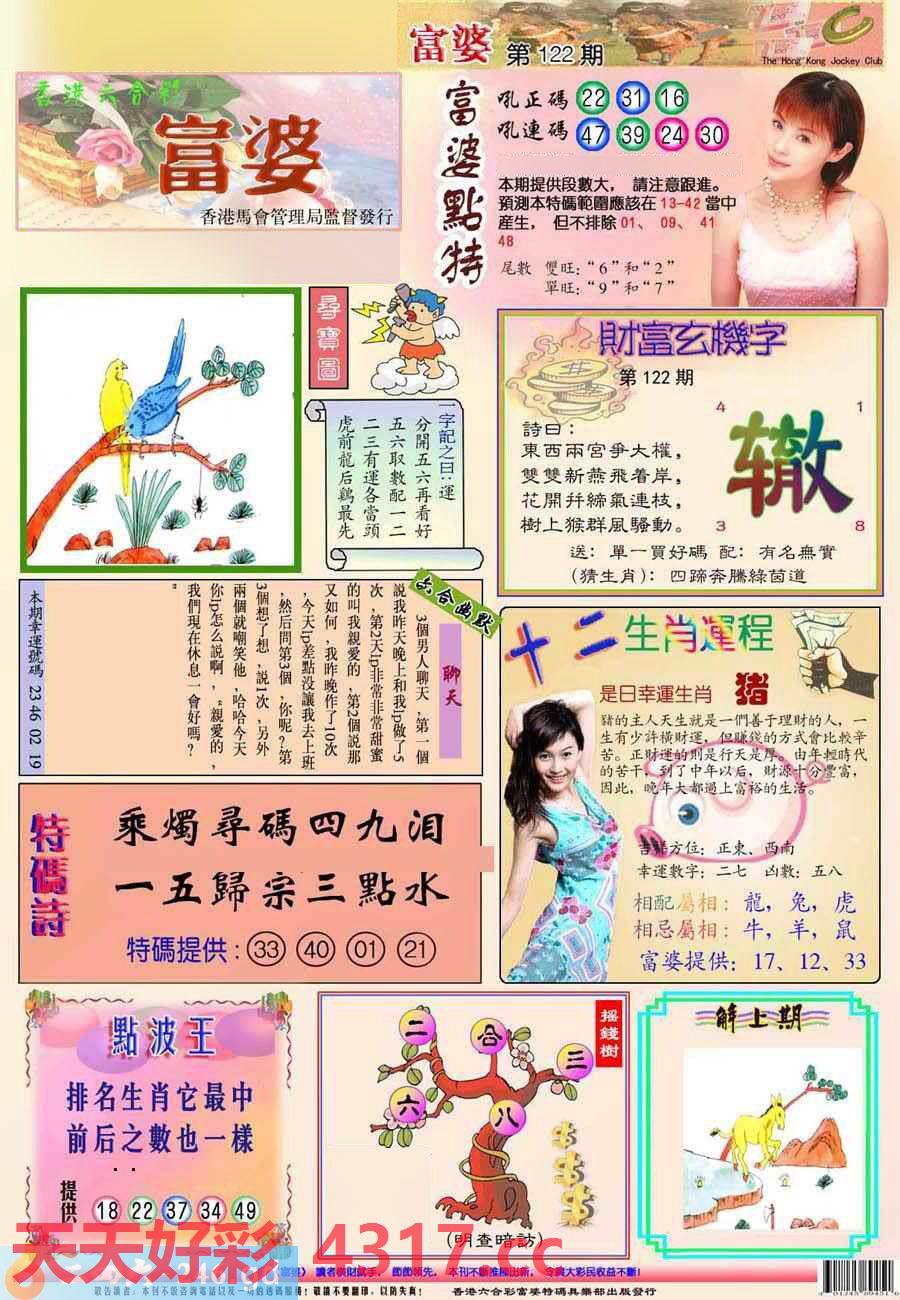 富婆 第122期
The Hong Kong Jockey Club
香港六合彩
富婆
香港馬會管理局監督發行
富婆點特
吼正碼 22 31 16
吼連碼 47 39 24 30
本期提供段數大， 請注意跟進。
預測本特碼範圍應該在 13-42 當中
産生， 但不排除 01、 09、 41
48
尾數 雙旺：“6”和“2”
單旺：“9”和“7”
尋寶圖
一字記之曰：運
分開五六再看好
五六取數配一二
二三有運各當頭
虎前龍后鷄最先
財富玄機字
第122期
詩曰：
東西兩宮爭大權，
雙雙新燕飛着岸，
花開幷締氣連枝，
樹上猴群風騷動。
4 1
辙
3 8
送： 單一買好碼 配： 有名無實
（猜生肖）： 四蹄奔騰綠茵道
六合幽默
聊天
3個男人聊天，第一個
説我昨天晚上和我lp做了5
次，第2天lp非常非常甜蜜
的叫我親愛的，第2個説那
又如何，我昨晚作了10次
，今天lp差點没讓我去上班
，然后問第3個，你呢？第
3個想了想，説1次，另外
兩個就嘲笑他，哈哈今天
你lp怎么説啊，“親愛的，
我們現在休息一會好嗎？
”
本期幸運號碼 23 46 02 19
十二生肖運程
是日幸運生肖 猪
豬的主人天生就是一們善于理財的人，一
生有少許橫財運，但賺錢的方式會比較辛
苦。正財運的則是行天是厚。由年輕時代
的苦干，到了中年以后，財源十分豐富，
因此，晚年大都過上富裕的生活。
吉祥方位： 正東、西南
幸運數字： 二七 凶數： 五八
相配屬相： 龍，兔，虎
相忌屬相： 牛，羊，鼠
富婆提供： 17、12、33
特碼詩
乘燭尋碼四九泪
一五歸宗三點水
特碼提供：33 40 01 21
點波王
排名生肖它最中
前后之數也一樣
提供 18 22 37 34 49
搖錢樹
二 合 三
六 八
（明查暗訪）
解上期
天天好彩 4317.cc
香港六合彩富婆特碼具樂部出版發行